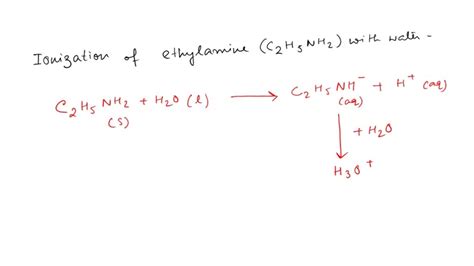 Ionization of ethylamine (C₂H₅NH₂) with water -
C₂H₅NH₂ + H₂O (l) ⟶ C₂H₅NH⁻ + H⁺ (aq)
(s) (aq)
↓ + H₂O
H₃O⁺